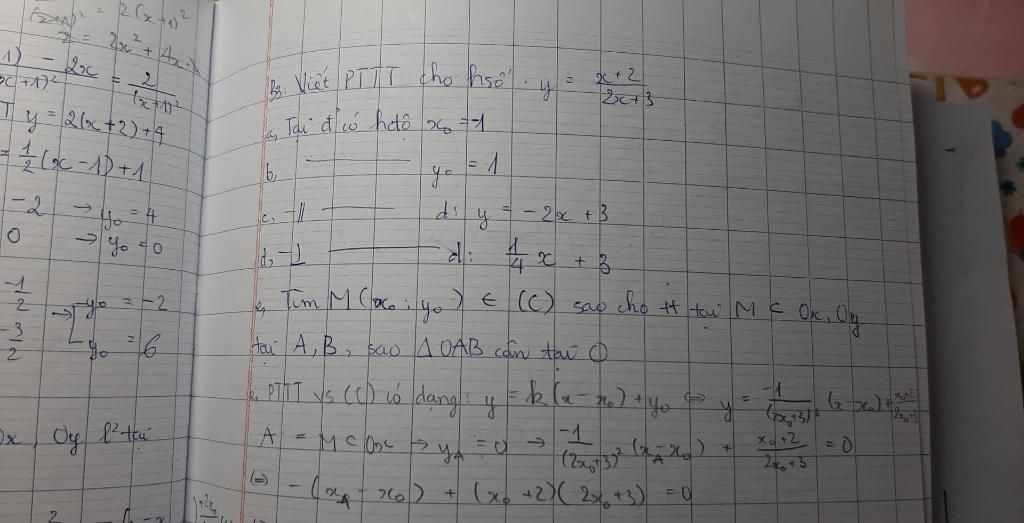 = 2(x+1)²
2 = 2x² + 4x
1) - 2x / (x+1)² = 2/(x+1)²
T y = 2(x+2)+4
= 1/2 (x-1)+1
-2 → y₀ = 4
0 → y₀ = 0
-1/2 → [ y₀ = -2
-3/2 y₀ = 6
0x, Oy l² tại
Viết PTTT cho hsố: y = (x+2)/(2x+3)
a, Tại đ' có hđộ x₀ = -1
b, ——— y₀ = 1
c, -// ——— d: y = -2x + 3
d, -⊥ ——— d: 1/4 x + 3
e, Tìm M(x₀; y₀) ∈ (C) sao cho tt tại M c Ox, Oy
tại A, B, sao ΔOAB cân tại O
PTTT vs (C) có dạng: y = k(x - x₀) + y₀ ⇔ y = -1/(2x₀+3)² (x - x₀) + (x₀+2)/(2x₀+3)
A = M c Ox → y_A = 0 → -1/(2x₀+3)² (x_A - x₀) + (x₀+2)/(2x₀+3) = 0
⇔ -(x_A - x₀) + (x₀+2)(2x₀+3) = 0